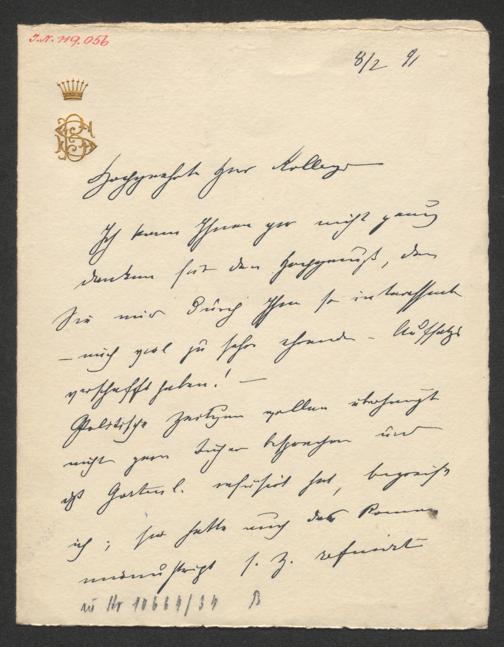 I.N. 119.056
8/2 91
Hochgeehrter Herr Kollege
Ich kann Ihnen gar nicht genug
danken für den Hochgenuß, den
Sie mir durch Ihren so interessanten
– mich viel zu sehr ehrenden – Aufsatz
verschafft haben! –
Politische Zeitungen wollen überhaupt
nicht gern Bücher besprechen und
daß Gartenl. refusirt hat, begreife
ich; sie hatte auch das Roman
manuskript s. Z. refusirt
zu Nr 10664/34 B